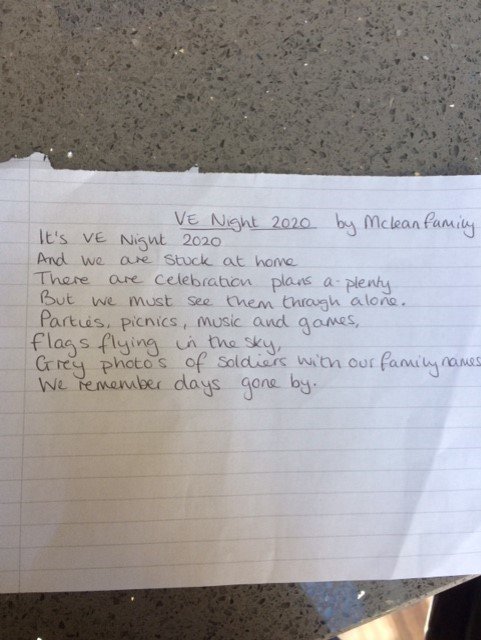 VE Night 2020 by Mclean family
It's VE Night 2020
And we are stuck at home
There are celebration plans a-plenty
But we must see them through alone.
Parties, picnics, music and games,
flags flying in the sky,
Grey photos of soldiers with our family names
We remember days gone by.